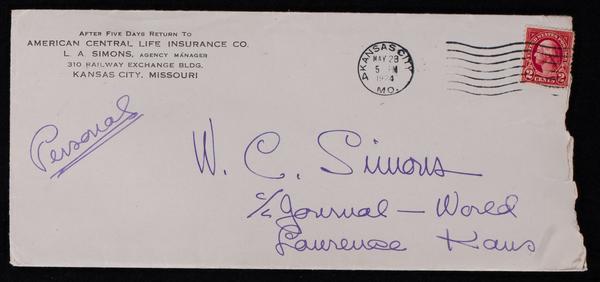 AFTER FIVE DAYS RETURN TO
AMERICAN CENTRAL LIFE INSURANCE CO.
L. A. SIMONS, AGENCY MANAGER
310 RAILWAY EXCHANGE BLDG.
KANSAS CITY, MISSOURI
KANSAS CITY
MAY 28
5 PM
1924
MO.
2 CENTS 2
Personal
W. C. Simons
c/o Journal - World
Lawrence Kans